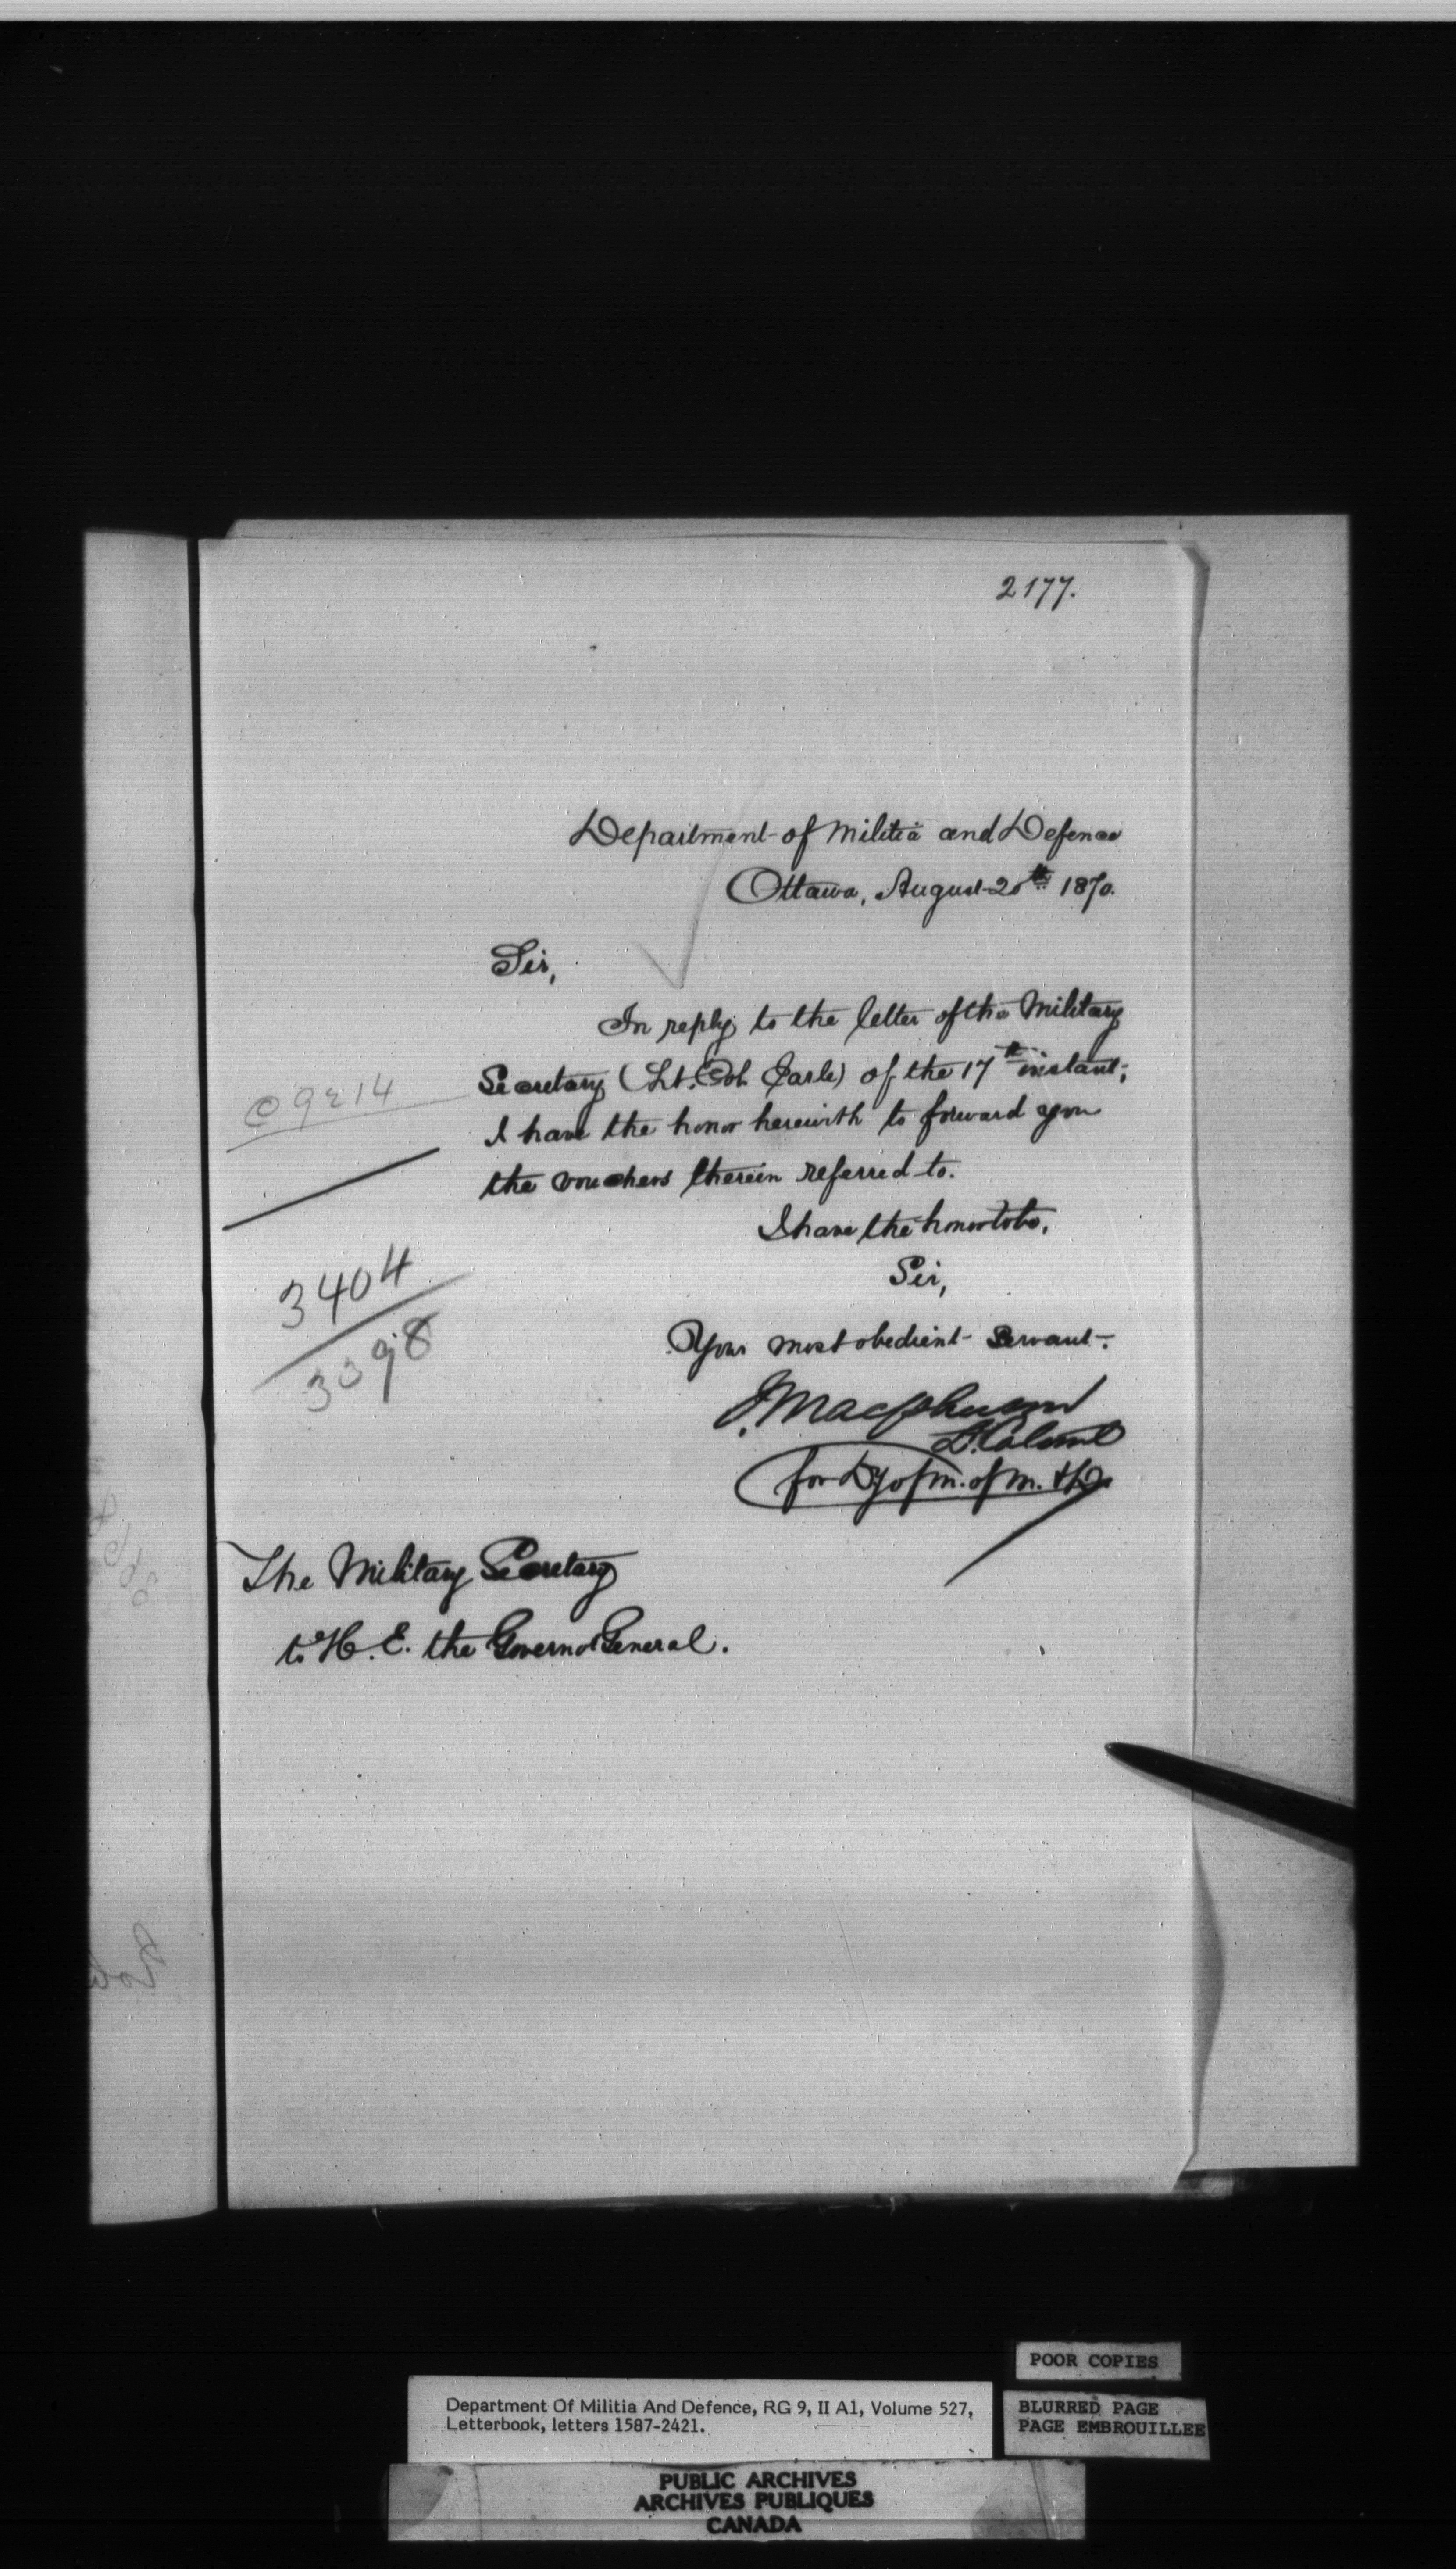 2177.
Department of Militia and Defence
Ottawa, August 20th 1870.
Sir,
In reply to the letter of the Military
Secretary (Lt. Col. Earle) of the 17th instant,
I have the honor herewith to forward you
the vouchers therein referred to.
I have the honor to be,
Sir,
Your most obedient Servant.
Lt. Colonel
for Dy of M. of M. & D.
C 9214
3404
3398
The Military Secretary
to H. E. the Governor General.
POOR COPIES
Department Of Militia And Defence, RG 9, II A1, Volume 527,
Letterbook, letters 1587-2421.
BLURRED PAGE
PAGE EMBROUILLEE
PUBLIC ARCHIVES
ARCHIVES PUBLIQUES
CANADA